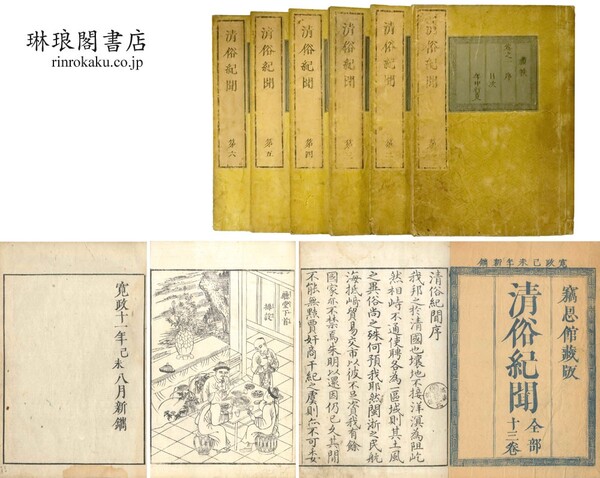 琳琅閣書店
rinrokaku.co.jp
清俗紀聞 第六
清俗紀聞 第五
清俗紀聞 第四
清俗紀聞
清俗紀聞
清俗紀聞
卷之一 序
目次
年中行事
寛政十一年己未八月新鐫
廳堂下首
清俗紀聞序
我邦之於清國也壤也不接洋溟為阻此
然相峙不通使聘各為一區域則其土風
之與俗尚之殊何預我耶然閩浙之民航
海抵崎貿易交市以彼不乏資我有餘
國家亦不禁焉朱明以還因仍已久其間
不能無黠賈奸商干紀之虞則亦不可
寛政己未年新鐫
竊恩館藏版
清俗紀聞
全部
十三卷